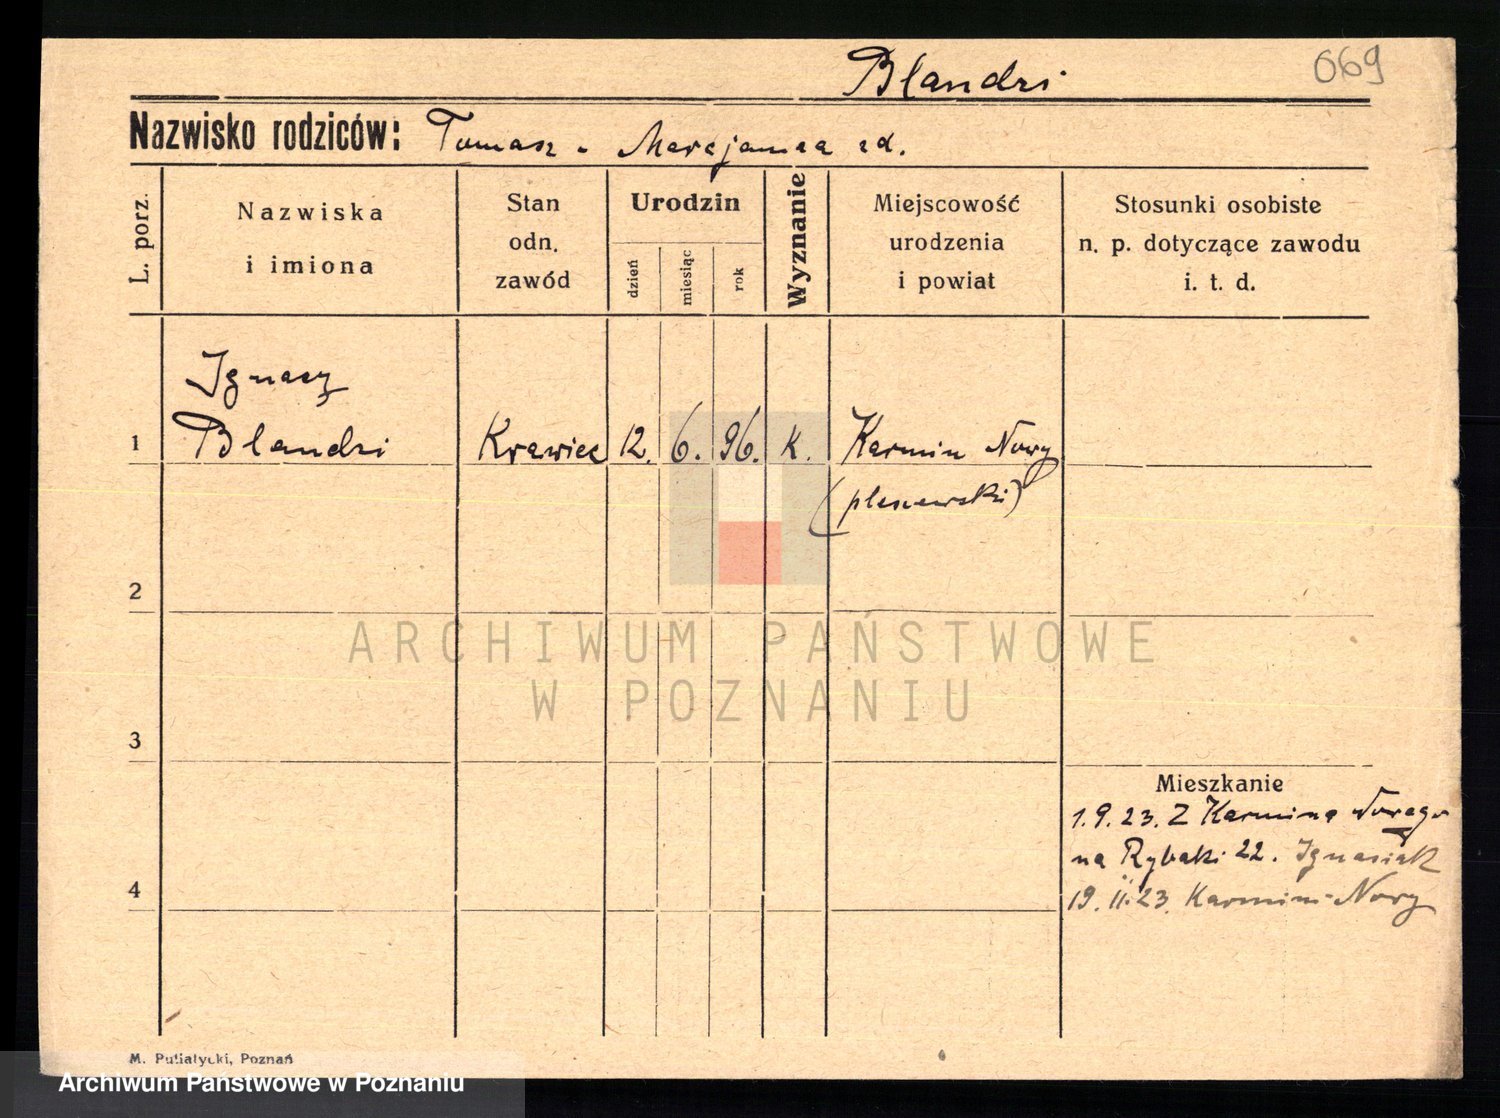 069
Blandzi
Nazwisko rodziców: Tomasz - Marcjanna zd.
L. porz.
Nazwiska
i imiona
Stan
odn.
zawód
Urodzin
dzień
miesiąc
rok
Wyznanie
Miejscowość
urodzenia
i powiat
Stosunki osobiste
n. p. dotyczące zawodu
i. t. d.
Ignacy
1 Blandzi Krawiec 12. 6. 96. K. Karmin Nowy
(pleszewski)
2
ARCHIWUM PAŃSTWOWE
W POZNANIU
3
Mieszkanie
1.9.23. Z Karmina Nowego
na Rybaki 22. Ignasiak
4
19.11.23. Karmin-Nowy
M. Putiatycki, Poznań
Archiwum Państwowe w Poznaniu